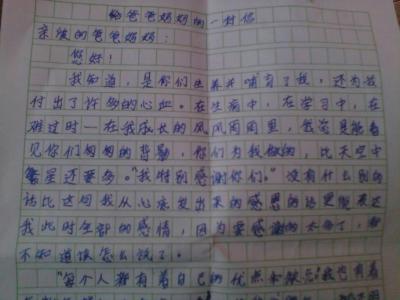 给爸爸妈妈的一封信
亲爱的爸爸妈妈:
您好!
我知道,是你们生养并哺育了我,还为我
付出了许多的心血。在生病中,在学习中,在
难过时一在我成长的风风雨雨里,我总是能看
见你们匆匆的背影,你们为我做的,比天空中
繁星还要多。"我特别感谢你们。"没有什么别的
话比这句我从心底发出来的感恩的话更能表达
我此时全部的感情,因为要感谢的太多了,都
不知道该怎么说了。
"每个人都有着自己的优点和缺点"我也有着